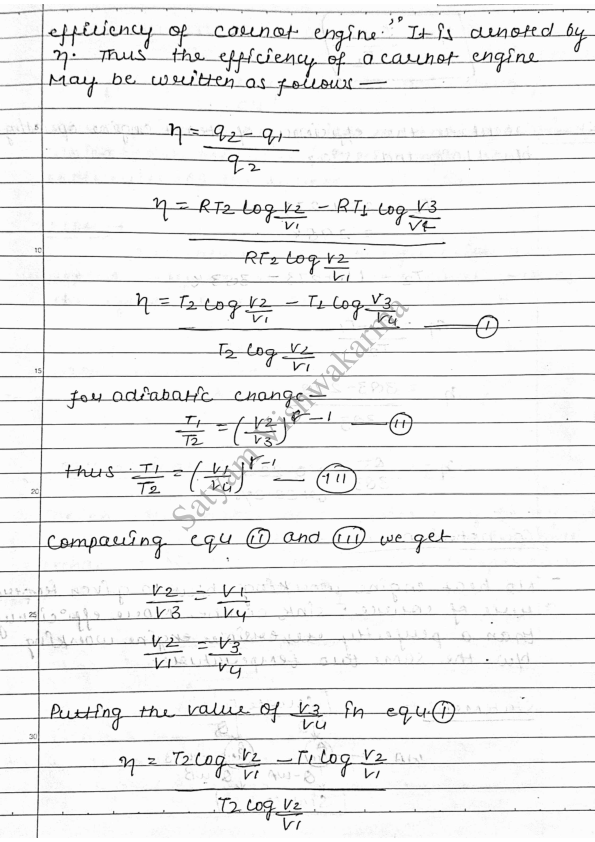 efficiency of carnot engine." It is denoted by
η. Thus the efficiency of a carnot engine
May be written as follows —
η = q2 - q1 / q2
η = RT2 log V2/V1 - RT1 log V3/V4 / RT2 log V2/V1
10
η = T2 log V2/V1 - T1 log V3/V4 / T2 log V2/V1 —— (I)
15
for adiabatic change —
T1/T2 = (V2/V3)^γ-1 —— (II)
thus T1/T2 = (V1/V4)^γ-1 — (III)
20
Comparing equ (II) and (III) we get
V2/V3 = V1/V4
25
V2/V1 = V3/V4
Putting the value of V3/V4 in equ. (I)
30
η = T2 log V2/V1 - T1 log V2/V1 / T2 log V2/V1
Satyam Vishwakarma